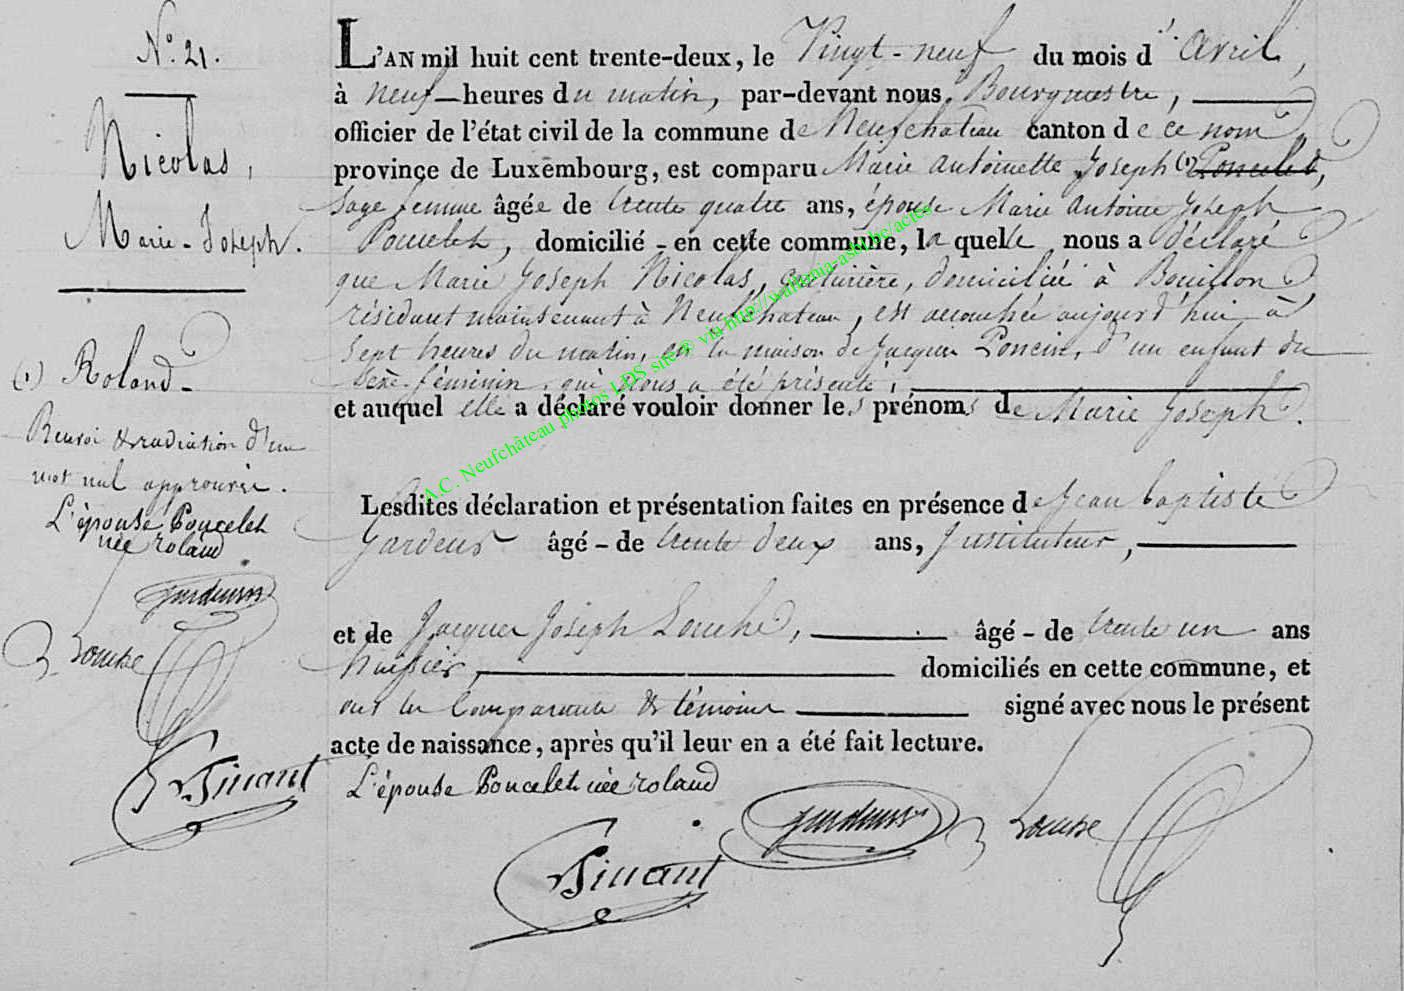 N.° 21.
Nicolas,
Marie-Joseph.
(1) Roland
Renvoi & radiation d'un
mot nul approuvés.
L'épouse Poncelet
née roland
L'AN mil huit cent trente-deux, le Vingt-neuf du mois d'avril,
à neuf heures du matin, par-devant nous, Bourgmestre,
officier de l'état civil de la commune de Neufchateau canton de ce nom
province de Luxembourg, est comparu Marie antoinette Joseph (1) Poncelet,
Sage femme âgée de trente quatre ans, épouse Marie Antoine Joseph
Poncelet, domicilié - en cette commune, laquelle nous a déclaré
que Marie Joseph Nicolas, couturière, domiciliée à Bouillon
résidant maintenant à Neufchateau, est accouchée aujourd'hui à
Sept heures du matin, en la maison de Jacques Poncin, d'un enfant du
Sexe féminin, qui nous a été présenté,
et auquel elle a déclaré vouloir donner les prénoms de Marie Joseph.
Lesdites déclaration et présentation faites en présence de Jean baptiste
âgé - de trente deux ans, Instituteur,
et de Jacques Joseph Louche, âgé - de trente un ans
huissier, domiciliés en cette commune, et
ont les Comparante & témoins signé avec nous le présent
acte de naissance, après qu'il leur en a été fait lecture.
L'épouse Poncelet née roland
A.C. Neufchâteau photos LDS site® via http://wallonia-asbl.be/actes